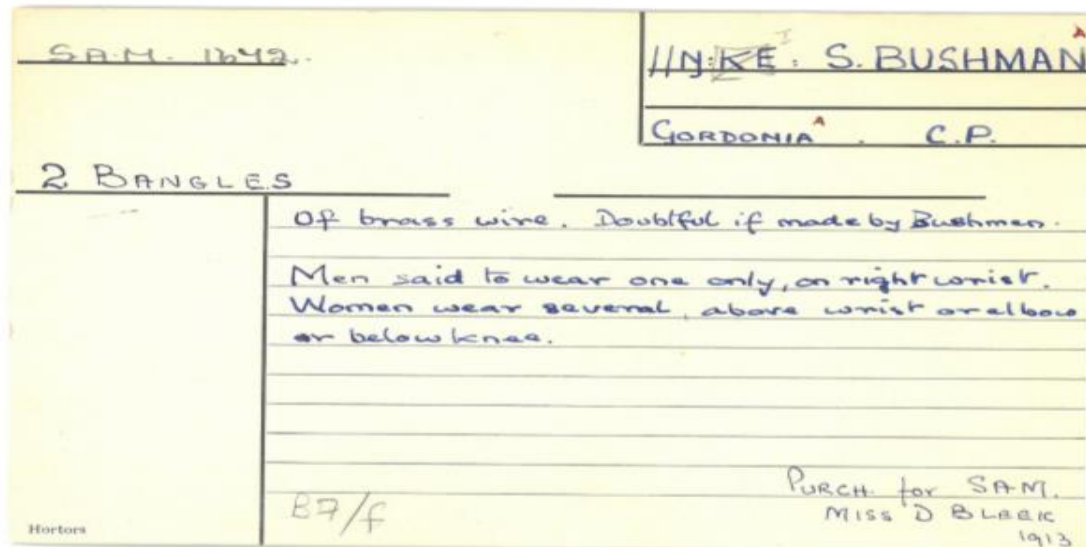 S.A.M. 1642.
//N:KE: S. BUSHMAN A
I
GORDONIA A . C.P.
2 BANGLES
Of brass wire. Doubtful if made by Bushmen.
Men said to wear one only, on right wrist.
Women wear several, above wrist or elbow
or below knee.
B7/f
PURCH. for SAM.
MISS D BLEEK
1913
Hortors